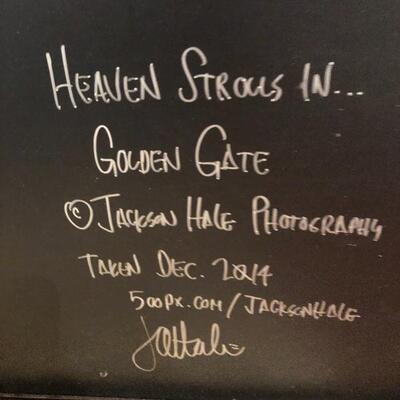 HEAVEN STROLLS IN...
GOLDEN GATE
© JACKSON HALE PHOTOGRAPHY
TAKEN DEC. 2014
500PX.COM/JACKSONHALE